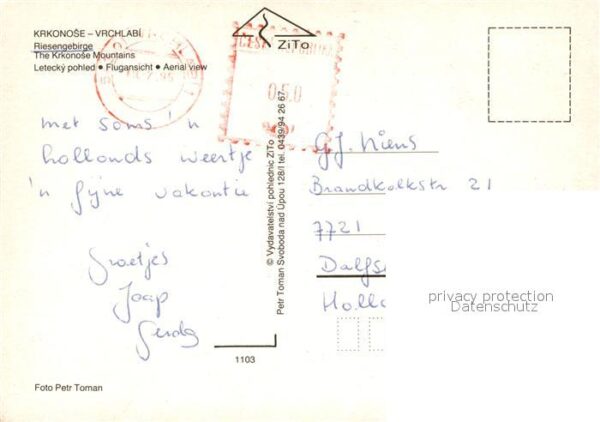 KRKONOŠE – VRCHLABÍ
Riesengebirge
The Krkonoše Mountains
Letecký pohled ● Flugansicht ● Aerial view
ZiTo
050
met soms 'n
hollands weertje
'n fijne vakantie
Groetjes
Jaap
Gerda
© Vydavatelství pohlednic ZiTo
Petr Toman Svoboda nad Úpou 128/I tel. 0439/94 26 67
G.J. Niens
Brandkolkstr 21
7721
Dalfs
Holla
privacy protection
Datenschutz
1103
Foto Petr Toman